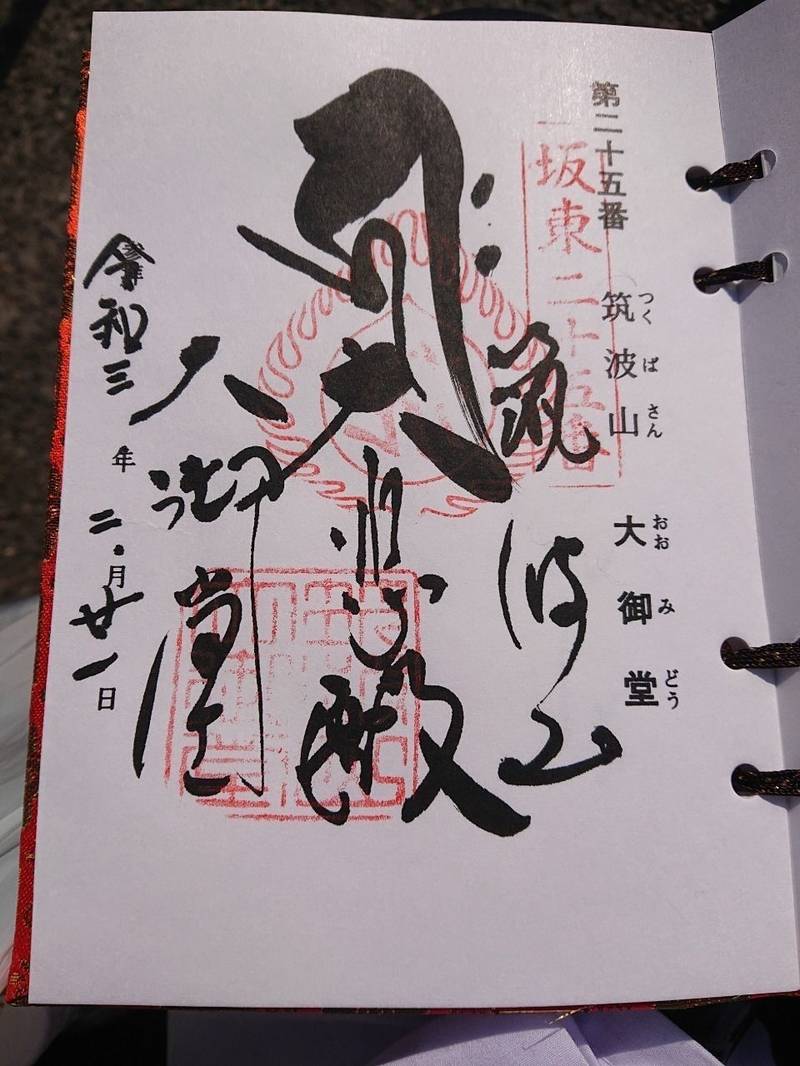 第二十五番
筑波山 大御堂
つくばさん おおみどう
坂東二十五番
筑波山
大悲殿
大御堂
令和三年二月廿一日